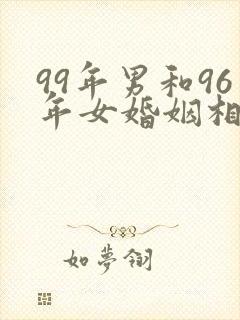 99年男和96
年女婚姻相
如夢翎